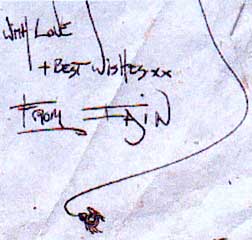 With Love
+ Best Wishes xx
From Iain